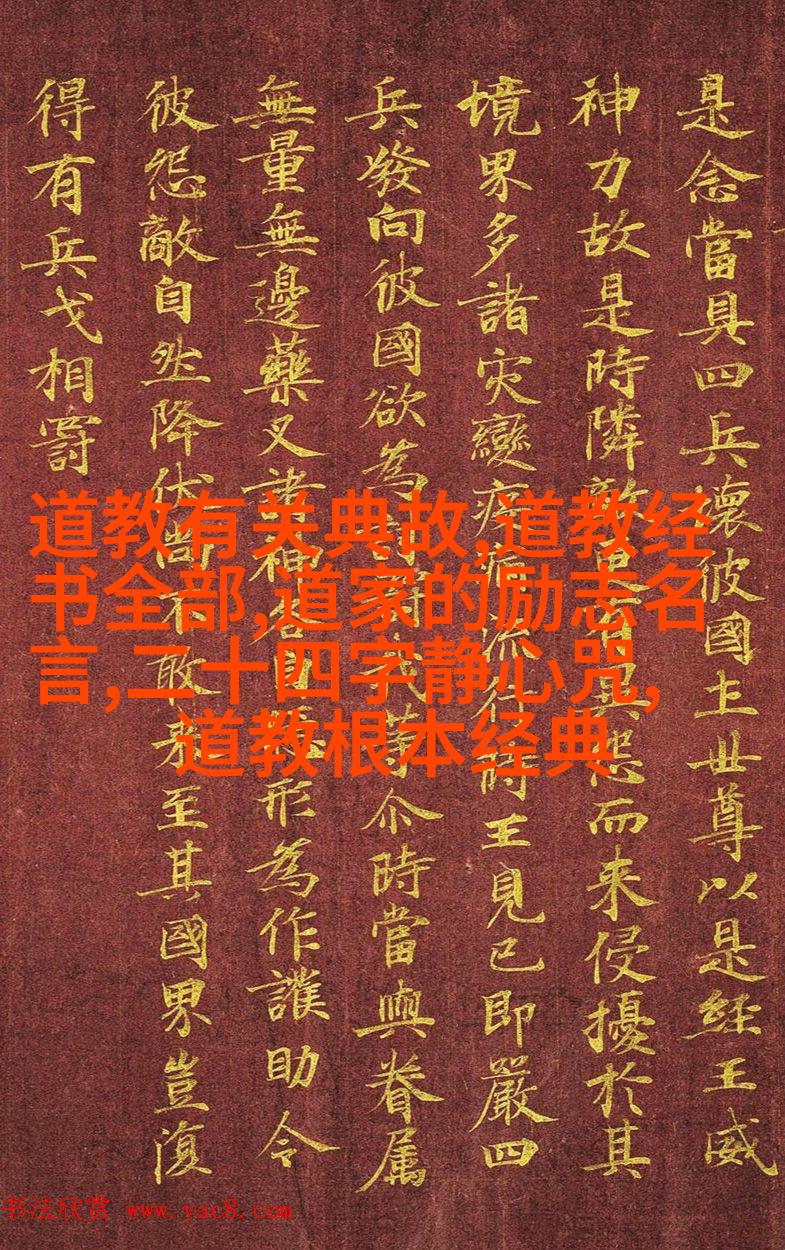 是念當具四兵壞彼國土世尊以是經王威
神力故是時隣敵更有異怨而来侵擾於其
境界多諸灾變疫病流行時王見已即嚴四
兵發向彼國欲為討罸我等尒時當與眷属
無量無邊藥叉諸神各自隱形為作護助令
彼怨敵自然降伏尚不敢来至其國界豈復
得有兵戈相罸
道教有关典故,道教经
书全部,道家的励志名
言,二十四字静心咒,
道教根本经典
书法欣赏 www.yac8.com